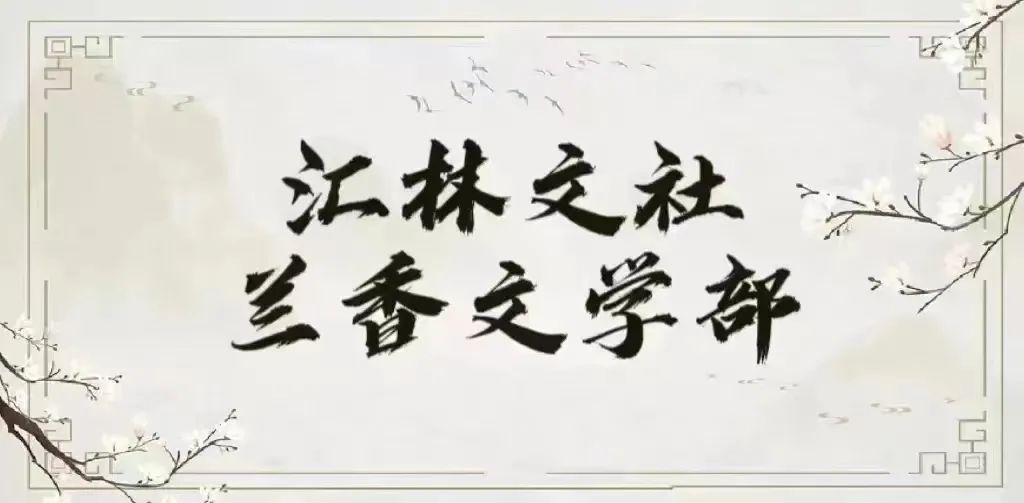 汇林文社
兰香文学部